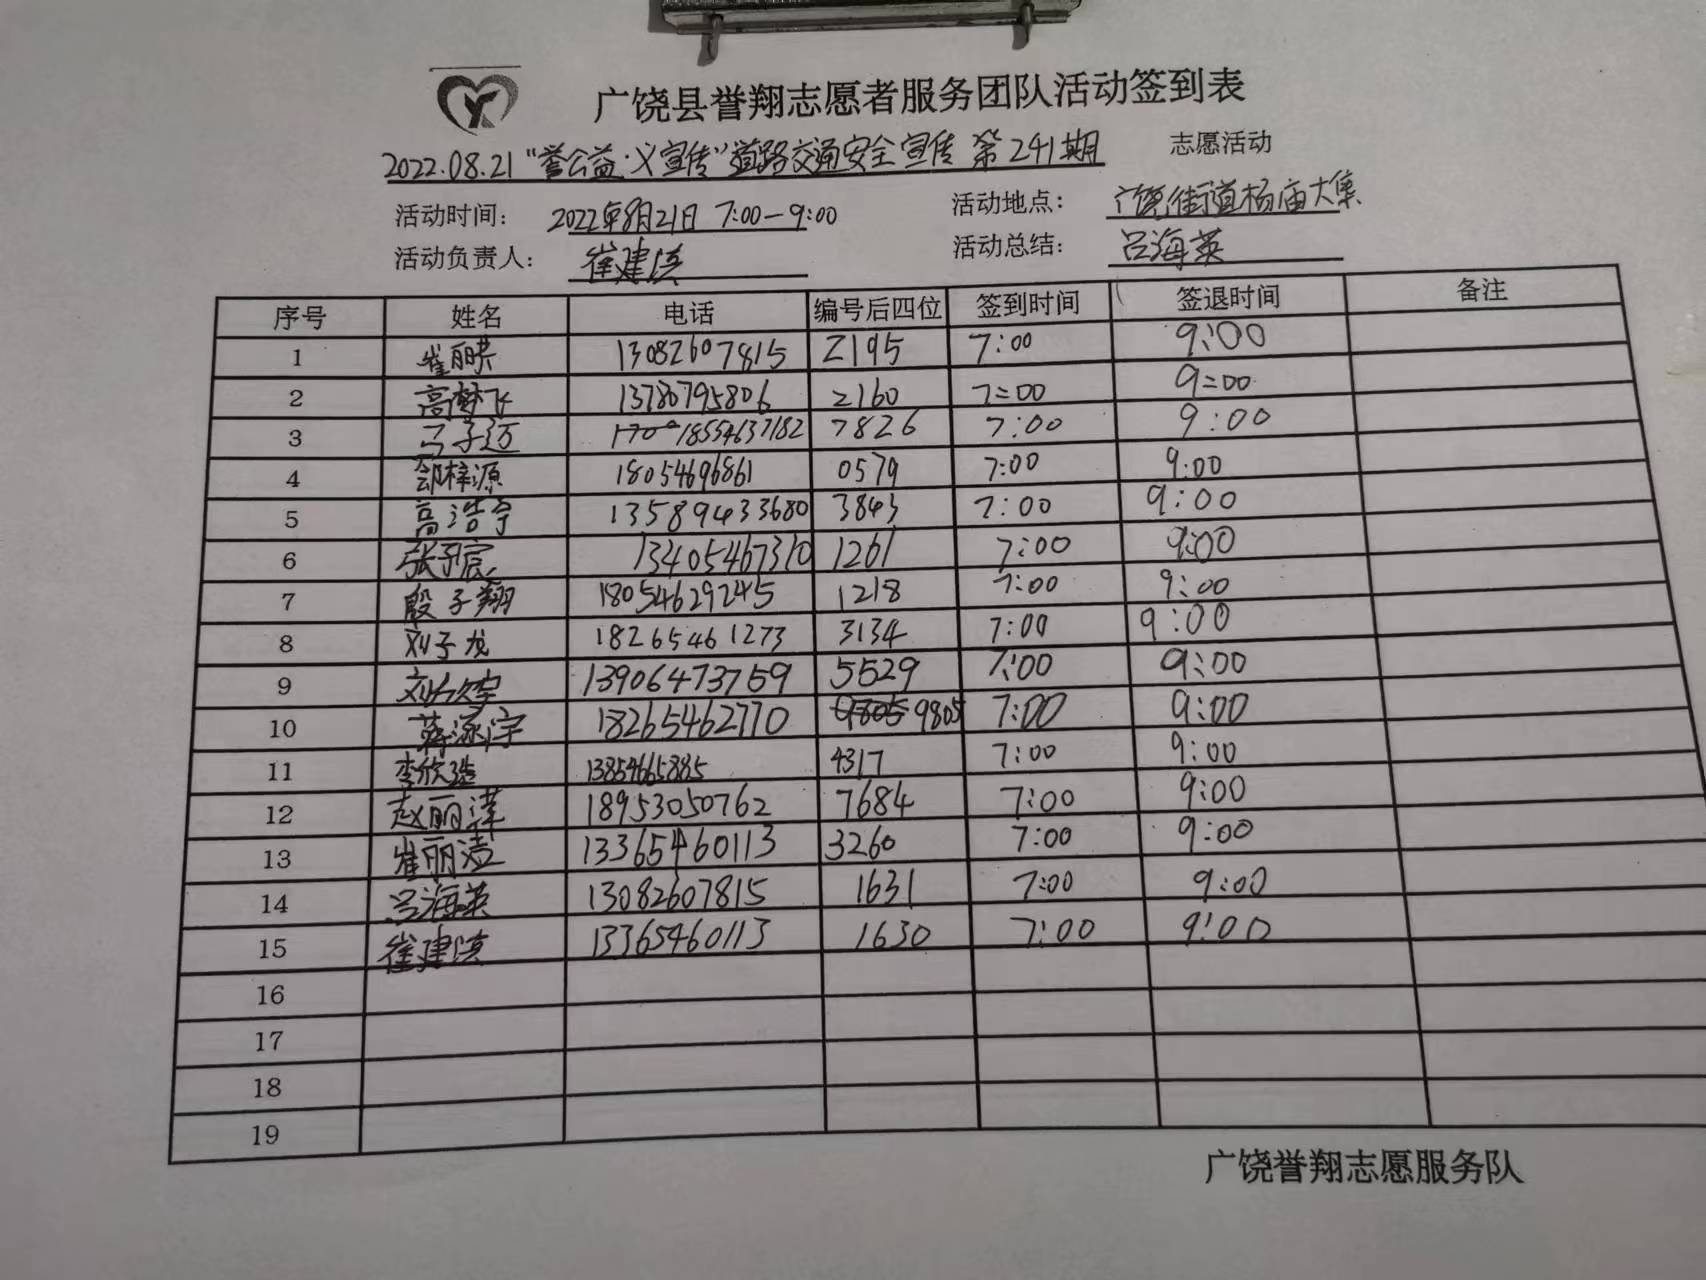 广饶县誉翔志愿者服务团队活动签到表
2022.08.21“誉公益·义宣传”道路交通安全宣传 第241期 志愿活动
活动时间： 2022年8月21日 7:00-9:00 活动地点： 广饶街道杨庙大集
活动负责人： 崔建滨 活动总结： 吕海英
序号 姓名 电话 编号后四位 签到时间 签退时间 备注
1 崔丽 13082607815 2195 7:00 9:00
2 高梦飞 13780795806 2160 7=00 9=00
3 子迈 18554637182 7826 7:00 9:00
4 郐梓源 18054696861 0579 7:00 9:00
5 高浩宁 13589433680 3843 7:00 9:00
6 张子宸 13405467310 1261 7:00 9:00
7 殷子翔 18054629245 1218 7:00 9:00
8 刘子龙 18265461273 3134 7:00 9:00
9 刘宇 13906473759 5529 7:00 9:00
10 蒋宇 18265462770 9805 7:00 9:00
11 李欣 13854665885 4317 7:00 9:00
12 赵丽萍 18953050762 7684 7:00 9:00
13 崔丽洁 13365460113 3260 7:00 9:00
14 吕海英 13082607815 1631 7:00 9:00
15 崔建滨 13365460113 1630 7:00 9:00
16
17
18
19
广饶誉翔志愿服务队